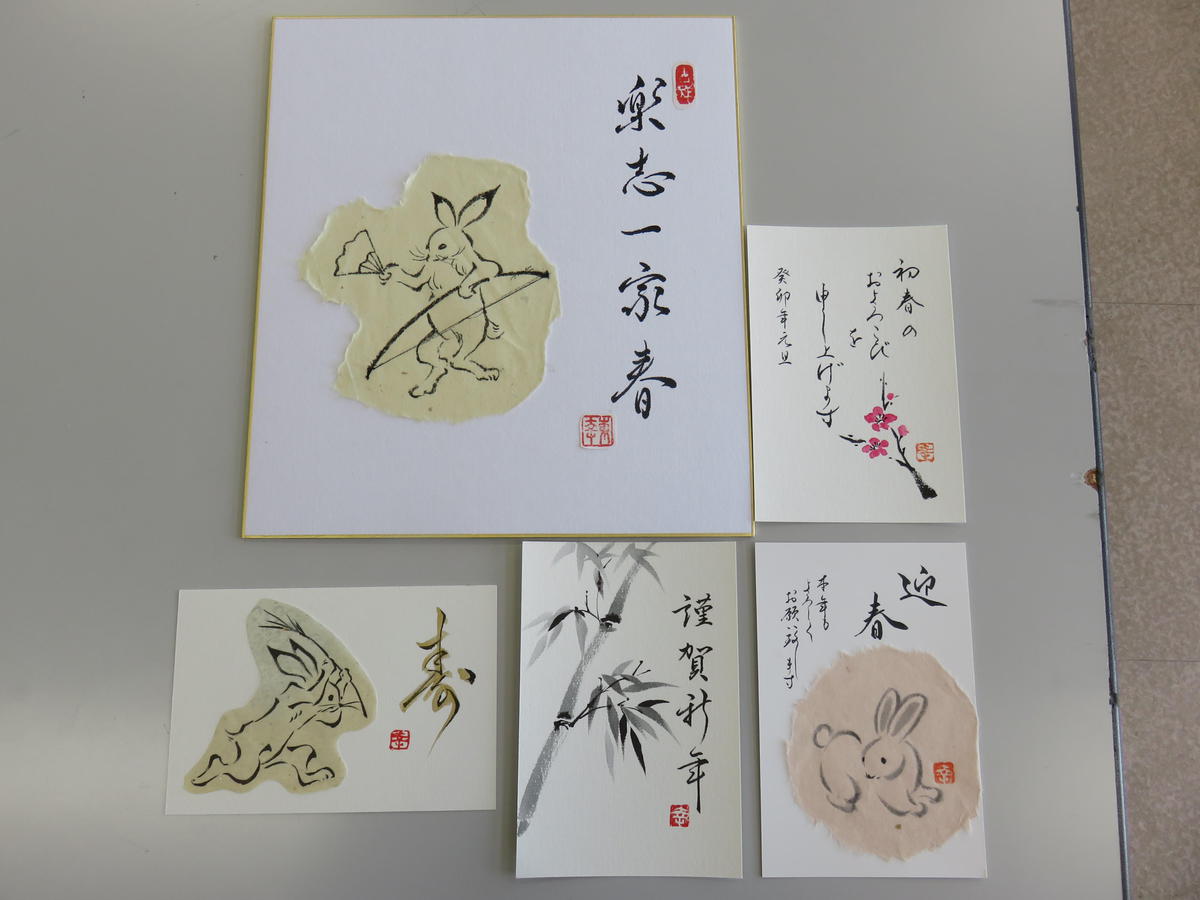 楽志一家春
初春の
およろこび
を
申し上げます
癸卯年元旦
寿
謹賀新年
迎
春
本年も
よろしく
お願い致します
幸
幸
幸